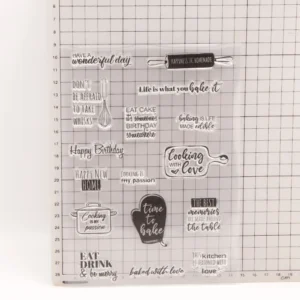 HAVE A
wonderful day
HAPPINESS IS HOMEMADE
DON'T
BE AFRAID
TO TAKE
WHISKS!
Life is what you bake it
EAT CAKE
BIRTHDAY
baking IS LIFE
MADE edible
Happy Birthday
Cooking
WITH
love
HAPPY NEW
HOME
my passion
Cooking
IS MY
passion
time
to
bake
THE BEST
memories
ARE MADE AROUND
THE TABLE
EAT
DRINK
& be merry
baked with love
KITCHEN
love